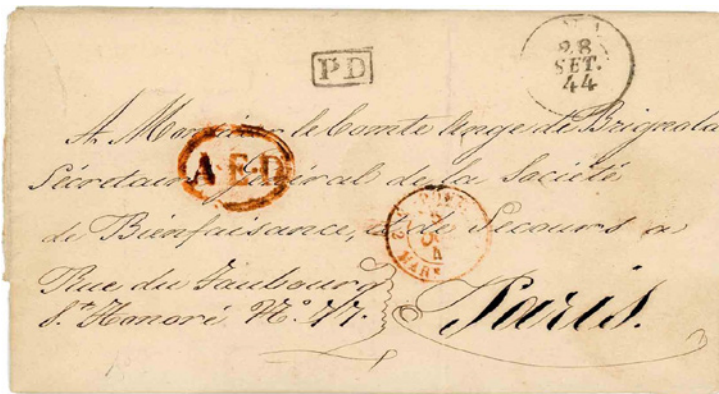 PD
28
SET.
44
A Monsieur le Comte Ange de Brignola
Sécretaire Général de la Société
A.E.D.
de Bienfaisance, et de Secours a
Rue du Faubourg
St. Honoré No. 77.
Paris.